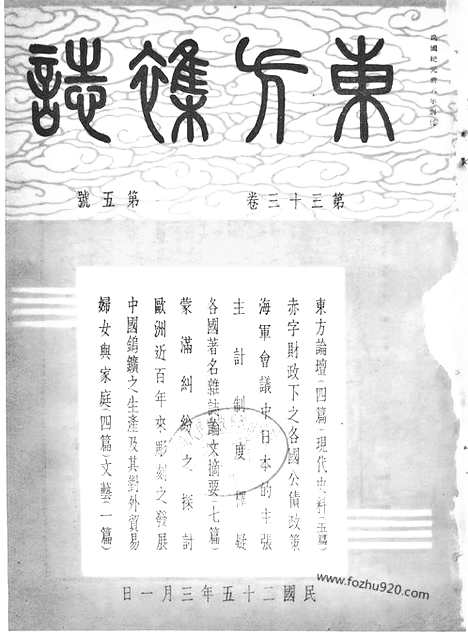 東方雜誌
第三十三卷 第五號
東方論壇(四篇)現代史料(五篇)
赤字財政下之各國公債政策
海軍會議中日本的主張
主計制度釋疑
各國著名雜誌論文摘要(七篇)
蒙滿糾紛之探討
歐洲近百年來彫刻之發展
中國鎢鑛之生產及其對外貿易
婦女與家庭(四篇)文藝(一篇)
民國二十五年三月一日
www.fozhu920.com